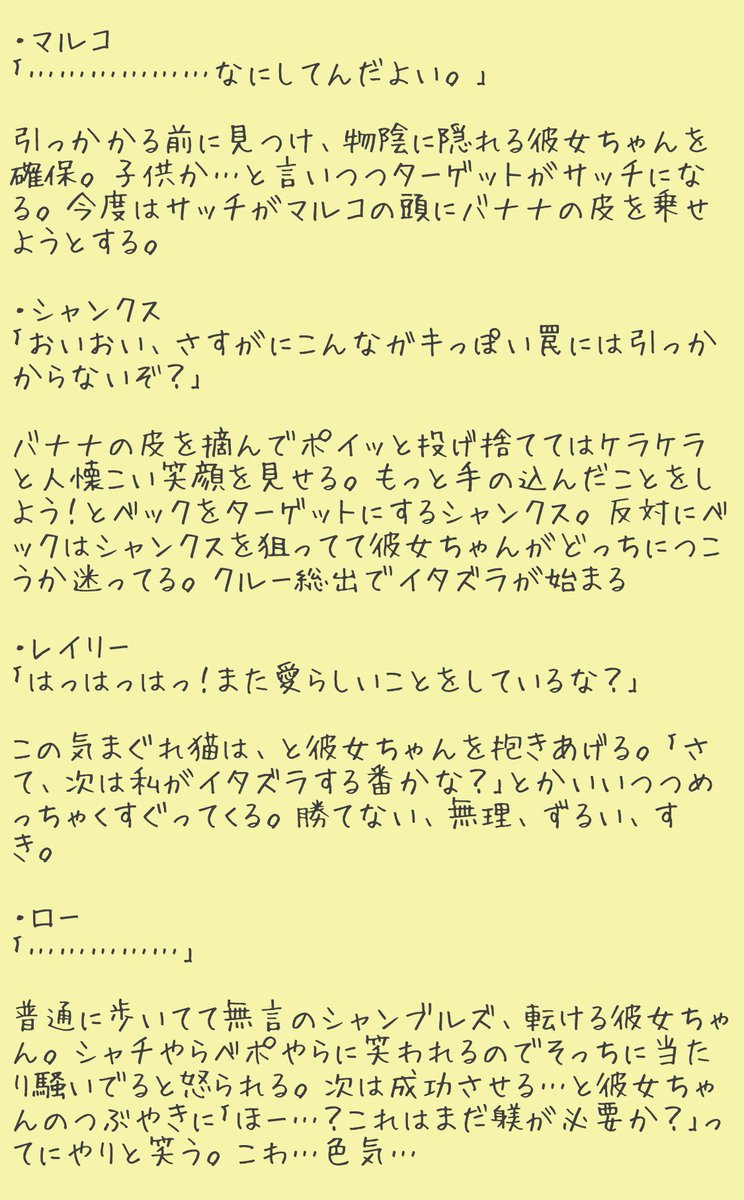 ・マルコ
「………………なにしてんだよい。」
引っかかる前に見つけ、物陰に隠れる彼女ちゃんを
確保。子供か…と言いつつターゲットがサッチにな
る。今度はサッチがマルコの頭にバナナの皮を乗せ
ようとする。
・シャンクス
「おいおい、さすがにこんなガキっぽい罠には引っか
からないぞ？」
バナナの皮を摘んでポイッと投げ捨ててはケラケラ
と人懐こい笑顔を見せる。もっと手の込んだことをし
よう！とベックをターゲットにするシャンクス。反対にベ
ックはシャンクスを狙ってて彼女ちゃんがどっちにつこ
うか迷ってる。クルー総出でイタズラが始まる
・レイリー
「はっはっはっ！また愛らしいことをしているな？」
この気まぐれ猫は、と彼女ちゃんを抱きあげる。「さ
て、次は私がイタズラする番かな？」とかいいつつめ
っちゃくすぐってくる。勝てない、無理、ずるい、す
き。
・ロー
「……………」
普通に歩いてて無言のシャンブルズ、転ける彼女ちゃ
ん。シャチやらベポやらに笑われるのでそっちに当た
り騒いでると怒られる。次は成功させる…と彼女ちゃ
んのつぶやきに「ほー…？これはまだ躾が必要か？」っ
てにやりと笑う。こわ…色気…